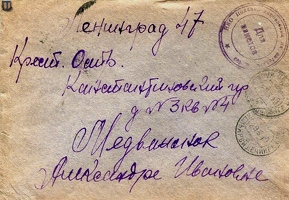 Ленинград 47
Крест. Остр.
Константиновский пр
д №3 кв №4
Медванюк
Александре Ивановне
Для пакетов